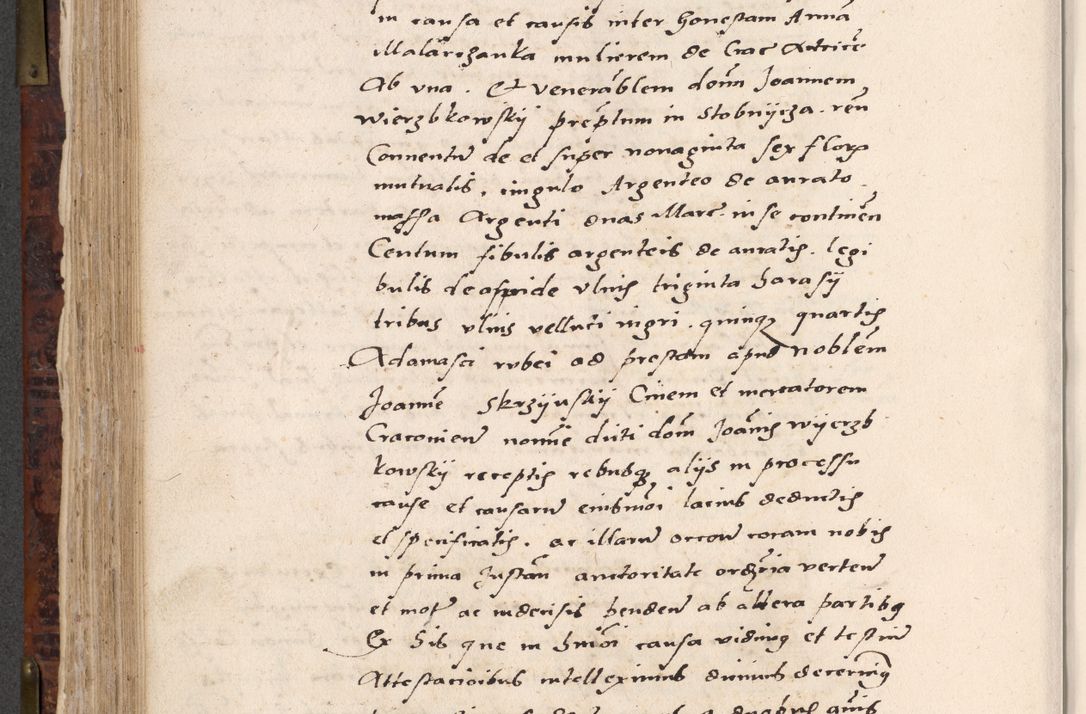 in causa et causis inter honestam Annā
Malarczanka mulierem de Crac Actricē
Ab vna. Et venerablem dom̄ Joannem
Wierzbkowskÿ prep̄tum in Stobnÿcza. reū
Conuentū de et super nonaginta sex florꝭ
mutualis, cingulo Argenteo de aurato
massa Argenti duas Marc. in se continēn
Centum fibulis argenteis de auratis. legi
bulis de aspide vlnis triginta harasÿ
tribus vlnis velluti nigri. quinqꝫ quartis
Adamasci rubei ad prestam apud noblēm
Joannē Skrzÿnskÿ Ciuem et mercatorem
Cracouień nomīe dicti dom̄ Joānis Wÿerzb
kowskÿ receptis rebusqꝫ alÿs in processu
cause et causarū eiusmōi lacius deductis
et specificatis. ac illarū occōne coram nobis
in prima Instān auctoritate ordīria verteń
et mot̄ ac indecisis pendeń ab altera partibꝫ
Ex his que in hmōi causa vidimꝫ et testiū
Attestacioibus intelleximus diuinis decernimꝫ